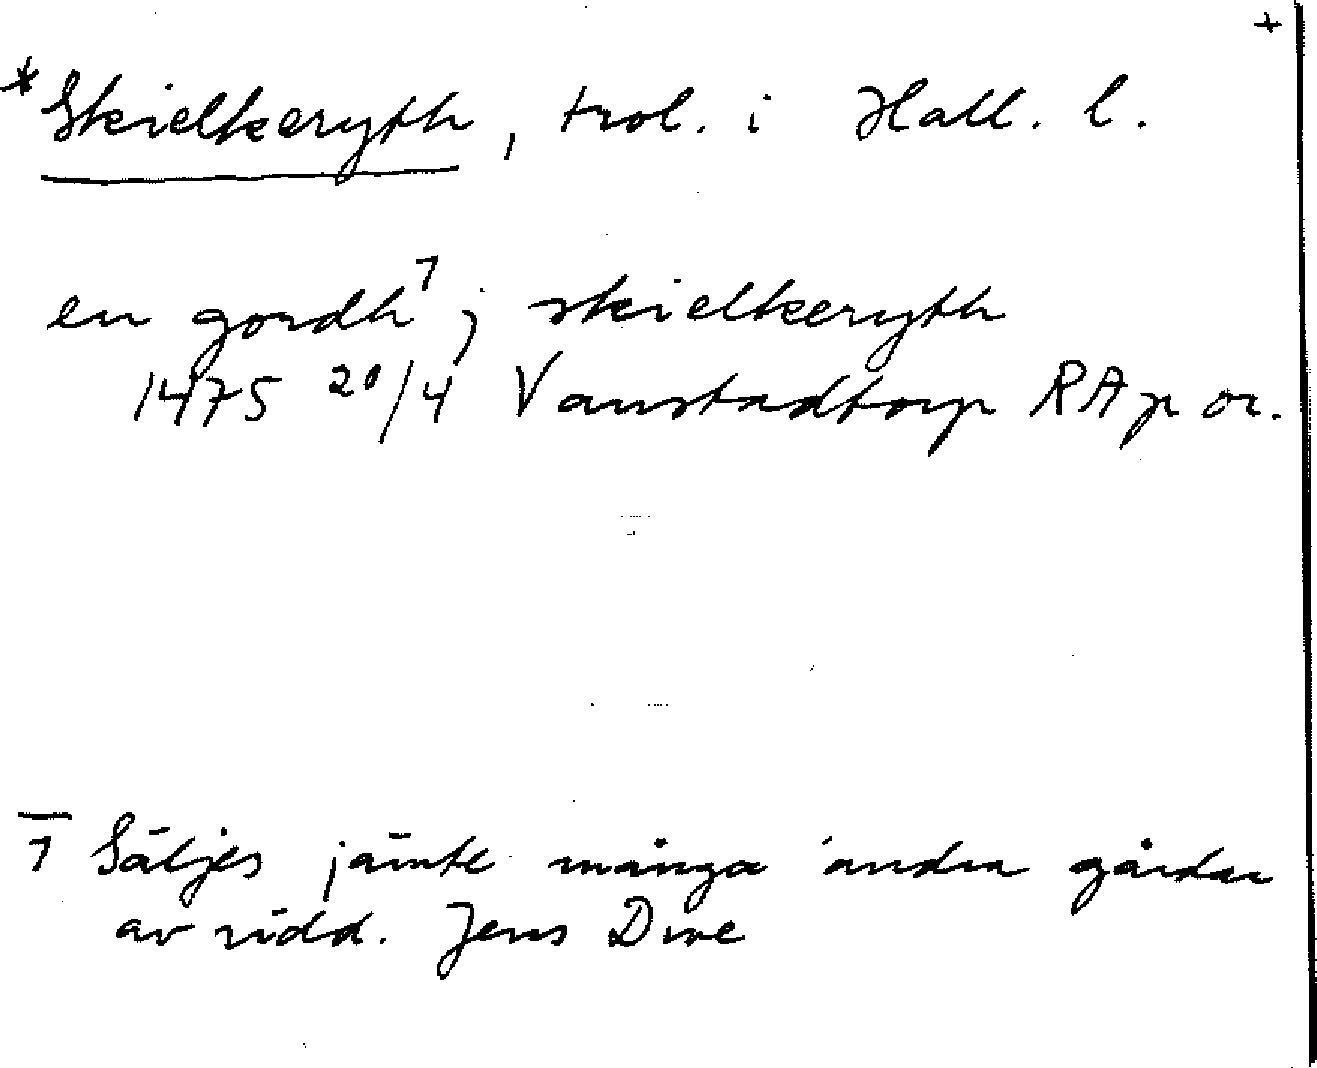 +
*Skielkeryth, trol. i Hall. l.
en gordh¹ j skielkeryth
1475 20/4 Vanstadtorp RAp or.
1 Säljes jämte många andra gårdar
av ridd. Jens Due